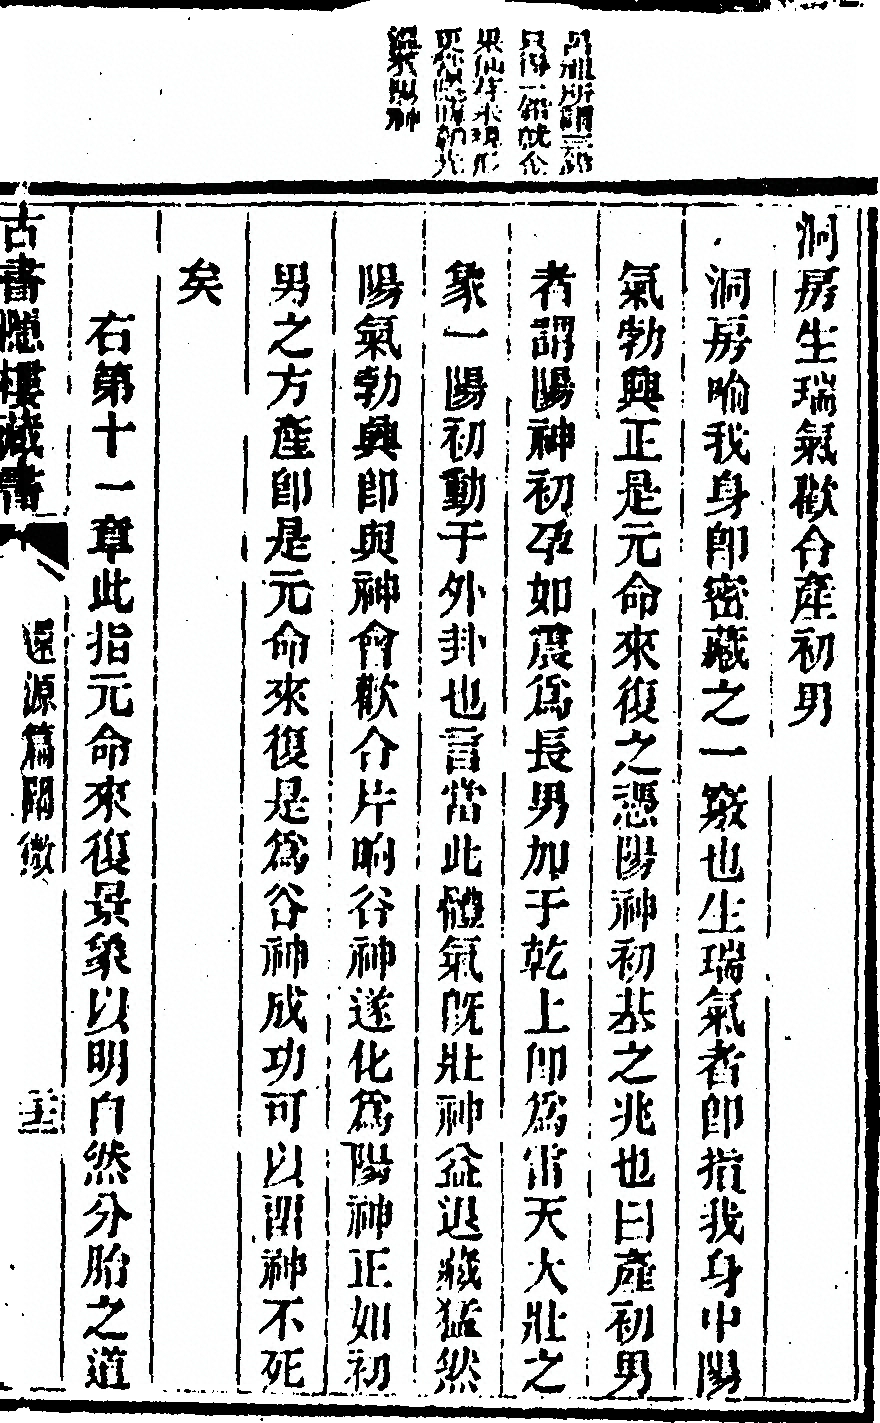 只得一鉛就全
果仙年未現形
洞房生瑞氣歡合產初男
洞房喻我身卽密藏之一竅也生瑞氣者卽指我身中陽
氣勃興正是元命來復之憑陽神初基之兆也曰產初男
者謂陽神初孕如震爲長男加于乾上卽爲雷天大壯之
象一陽初動于外卦也言當此體氣旣壯神益退藏猛然
陽氣勃興卽與神會歡合片晌谷神遂化爲陽神正如初
男之方產卽是元命來復是爲谷神成功可以謂神不死
矣
右第十一章此指元命來復景象以明自然分胎之道
古書隱樓藏書
還源篇闡微